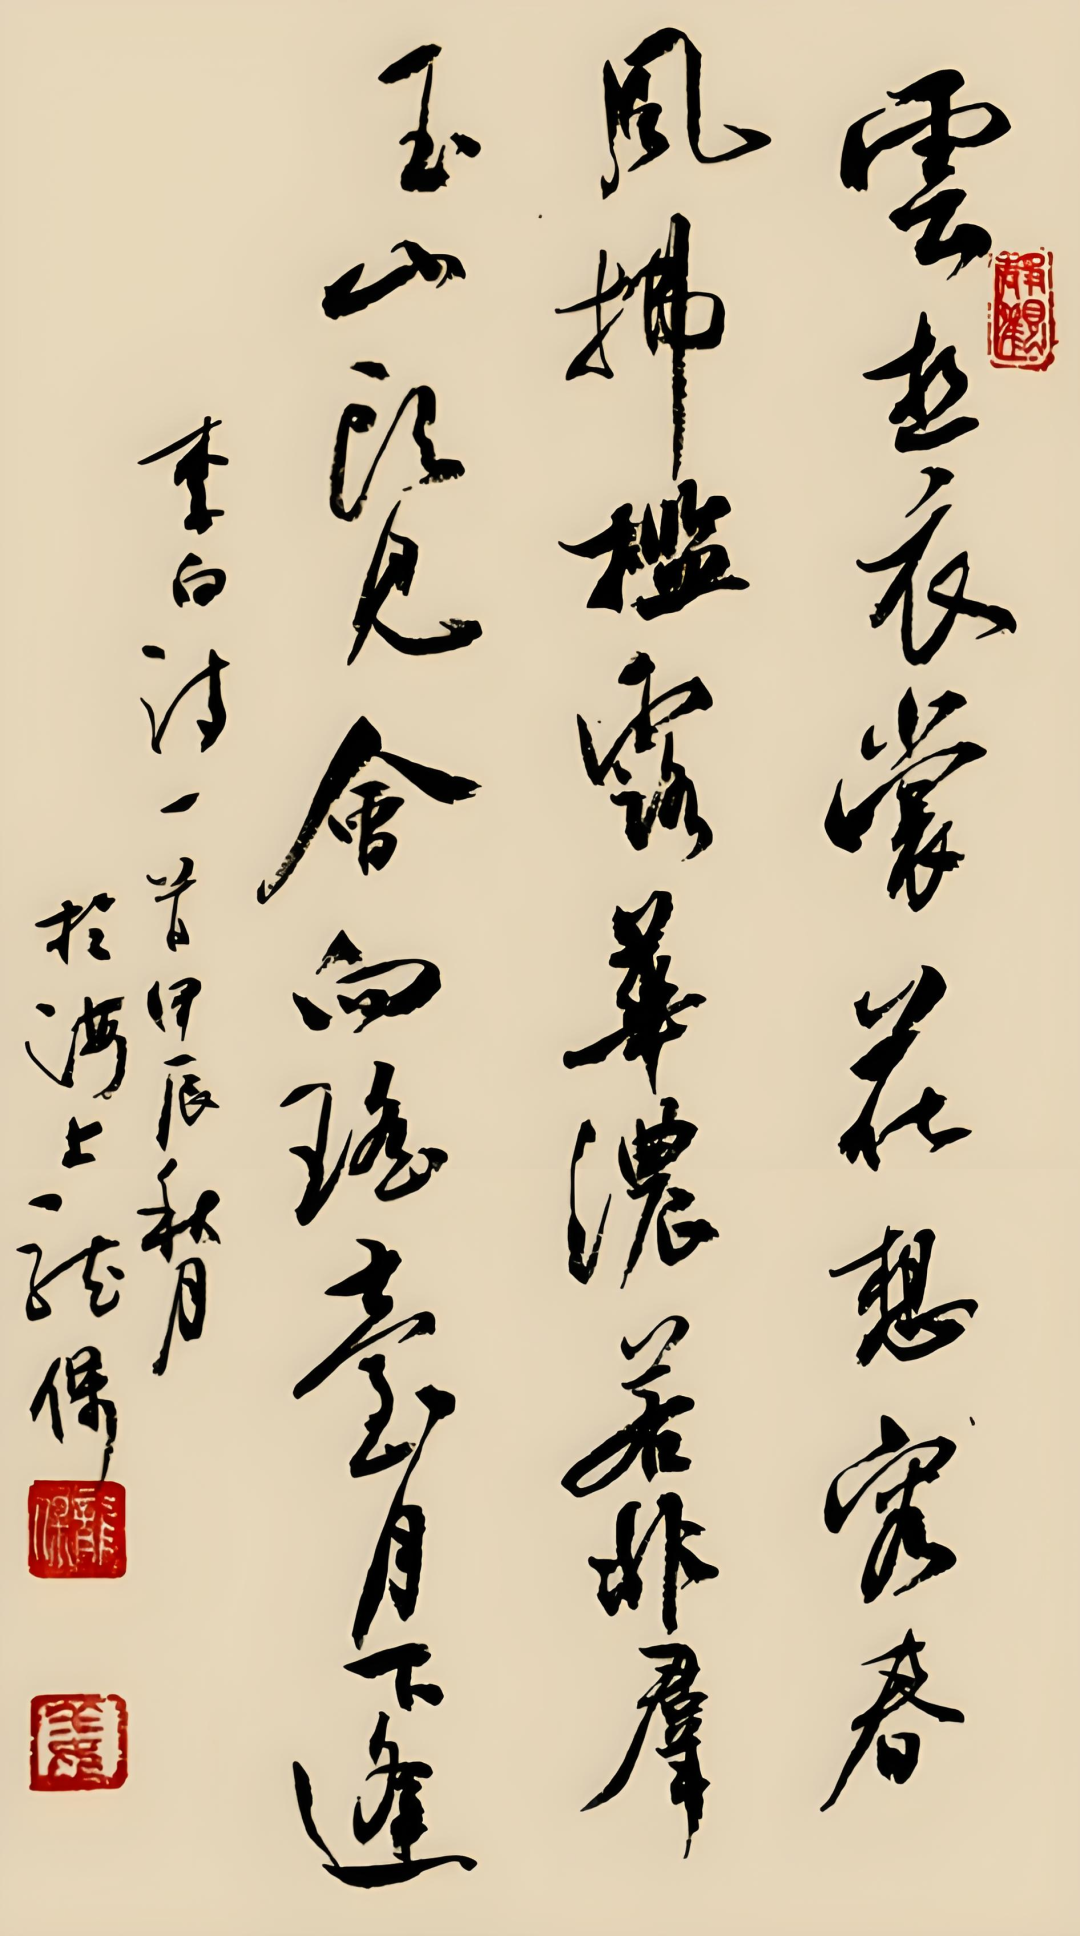 雲想衣裳花想容春
風拂檻露華濃若非羣
玉山頭見會向瑤臺月下逢
李白詩一首甲辰秋月
於海上龍保
靜觀
龍保